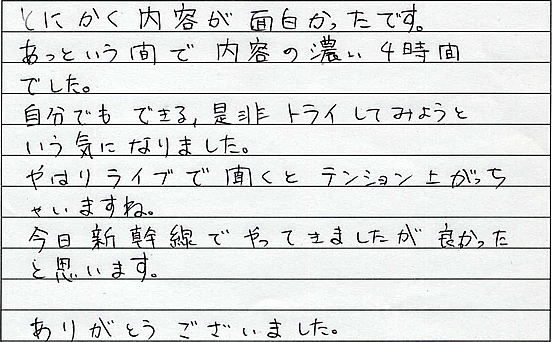 とにかく内容が面白かったです。
あっという間で内容の濃い4時間
でした。
自分でもできる,是非トライしてみようと
いう気になりました。
やはりライブで聞くとテンション上がっち
ゃいますね。
今日新幹線でやってきましたが良かった
と思います。
ありがとうございました。